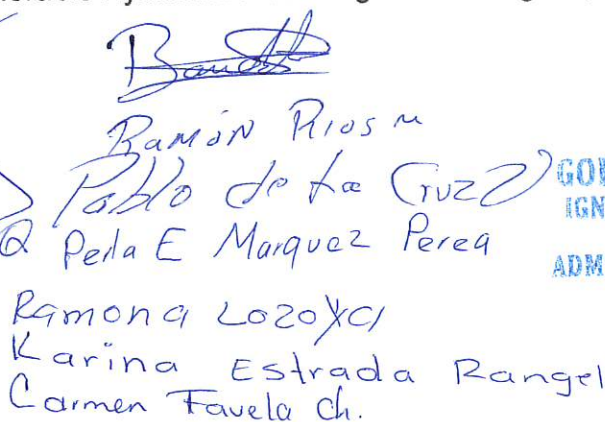 Ramón Rios M
Pablo de la Cruz
Perla E Marquez Perea
Ramona Lozoya
Karina Estrada Rangel
Carmen Favela Ch.